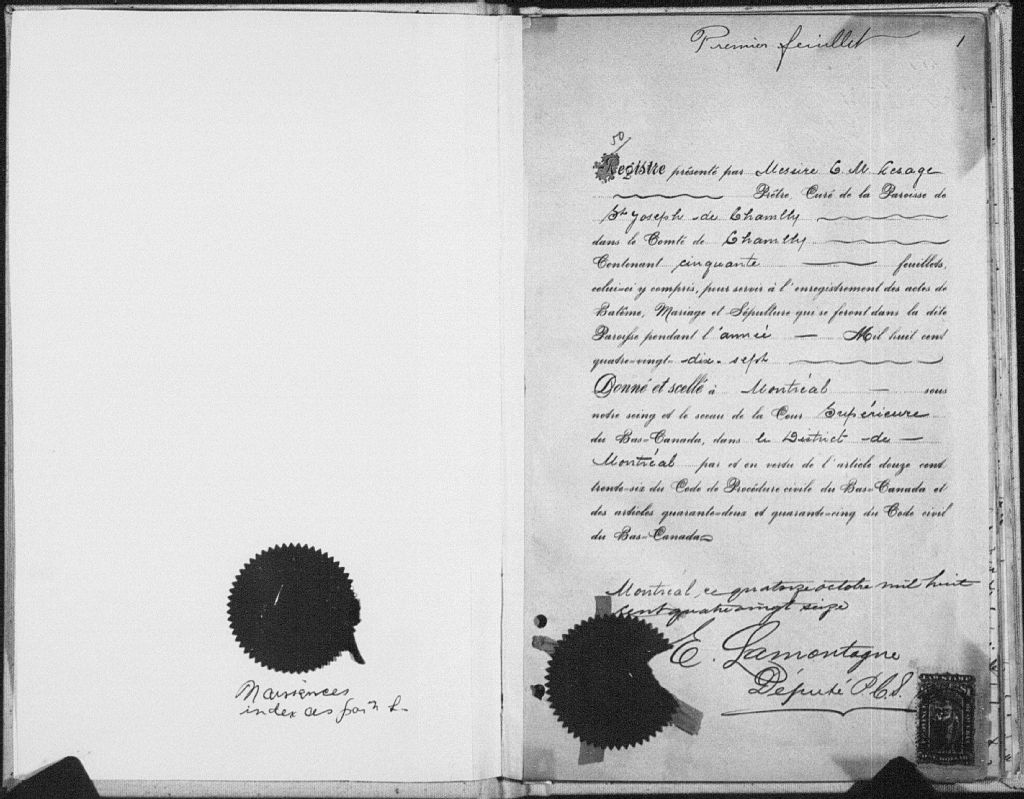 Naissances
index
Premier feuillet 1
50/
Registre présenté par Messire E. M. Lesage
Prêtre, Curé de la Paroisse de
St Joseph de Chambly
dans le Comté de Chambly
Contenant cinquante feuillets,
celui-ci y compris, pour servir à l'enregistrement des actes de
Batême, Mariage et Sépulture qui se feront dans la dite
Paroisse pendant l'année — Mil huit cent
quatre-vingt-dix-sept
Donné et scellé à Montréal — sous
notre seing et le sceau de la Cour Supérieure
du Bas-Canada, dans le District de —
Montréal par et en vertu de l'article douze cent
trente-six du Code de Procédure civile du Bas-Canada et
des articles quarante-deux et quarante-cinq du Code civil
du Bas-Canada
Montréal, ce quatorze octobre mil huit
cent quatrevingt seize
E. Lamontagne
Député P.C.S.
LAW STAMP